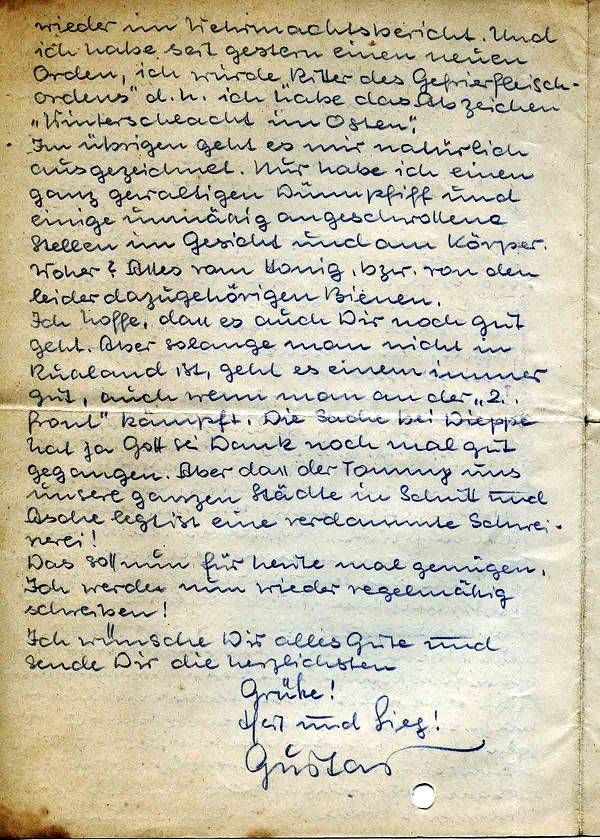 wieder im Wehrmachtsbericht. Und
ich habe seit gestern einen neuen
Orden, ich wurde Ritter des Gefrierfleisch-
ordens" d.h. ich habe das Abzeichen
„Winterschlacht im Osten".
Im übrigen geht es mir natürlich
ausgezeichnet. Nur habe ich einen
ganz gewaltigen Dünnpfiff und
einige unmäßig angeschwollene
Stellen im Gesicht und am Körper.
Woher? Alles vom Honig, bzw. von den
leider dazugehörigen Bienen.
Ich hoffe, daß es auch Dir noch gut
geht. Aber solange man nicht in
Rußland ist, geht es einem immer
gut, auch wenn man an der „2.
Front" kämpft. Die Sache bei Dieppe
hat ja Gott sei Dank noch mal gut
gegangen. Aber daß der Tommy uns
unsere ganzen Städte in Schutt und
Asche legt ist eine verdammte Schwei-
nerei!
Das soll nun für heute mal genügen.
Ich werde nun wieder regelmäßig
schreiben!
Ich wünsche Dir alles Gute und
sende Dir die herzlichsten
Grüße!
Heil und Sieg!
Gustav